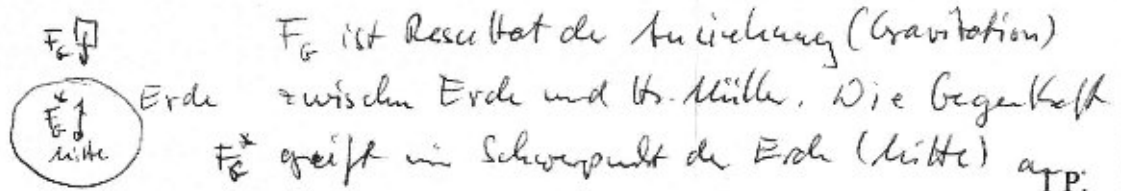 F_G F_G ist Resultat der Anziehung (Gravitation)
F_G* Mitte Erde zwischen Erde und Hr. Müller. Die Gegenkraft
F_G* greift im Schwerpunkt der Erde (Mitte) an
P: